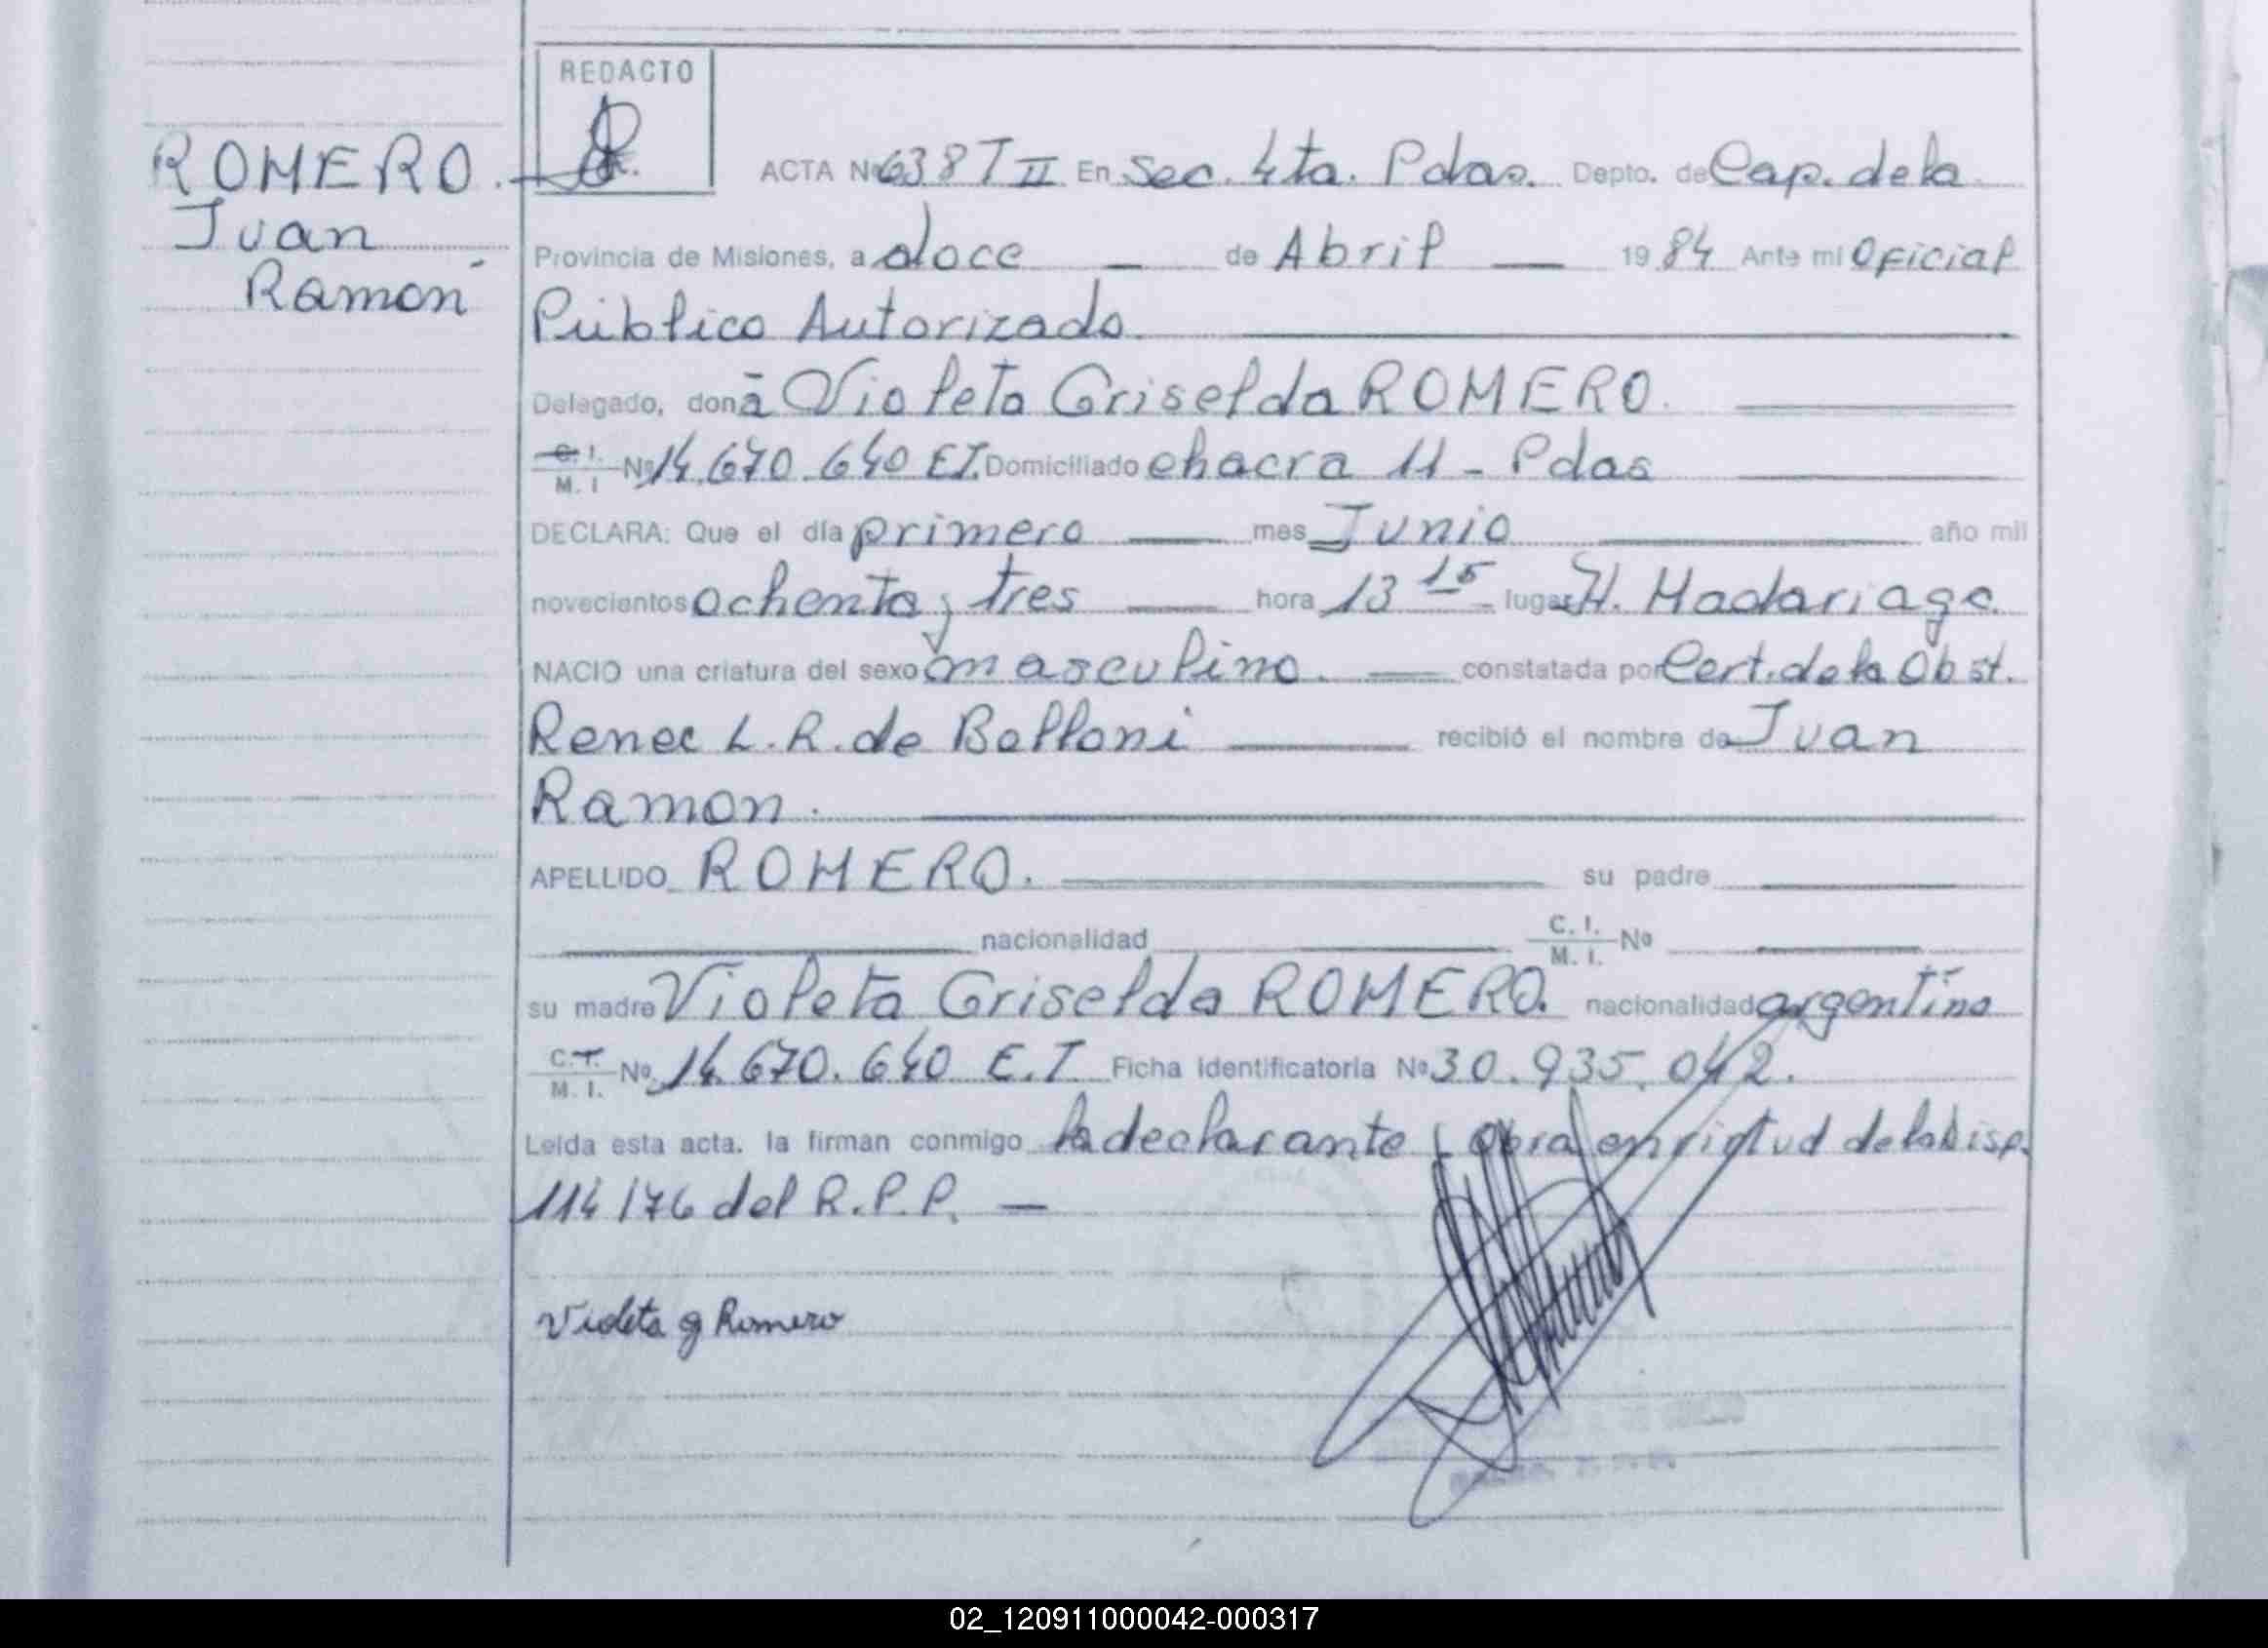 REDACTO
ROMERO.
Juan
Ramón
ACTA Nº 638 T II En Sec. 4ta. Pdas. Depto. de Cap. de la
Provincia de Misiones, a doce — de Abril — 19 84 Ante mi Oficial
Público Autorizado.
Delegado, don a Violeta Griselda ROMERO.
C. I. M. I Nº 14.670.640 E.T. Domiciliado chacra 11 - Pdas
DECLARA: Que el día primero — mes Junio — año mil
novecientos ochenta y tres — hora 13 15 lugar H. Madariaga.
NACIO una criatura del sexo masculino. — constatada por Cert. de la Obst.
Renee L. R. de Belloni — recibió el nombre de Juan
Ramon.
APELLIDO ROMERO. — su padre —
— nacionalidad — C. I. M. I. Nº —
su madre Violeta Griselda ROMERO. nacionalidad argentina
C. I. M. I. Nº 14.670.640 E.T. Ficha identificatoria Nº 30.935.042.
Leída esta acta. la firman conmigo la declarante obra en virtud de la Disp.
114/76 del R.P.P. —
Violeta g Romero
02_120911000042-000317